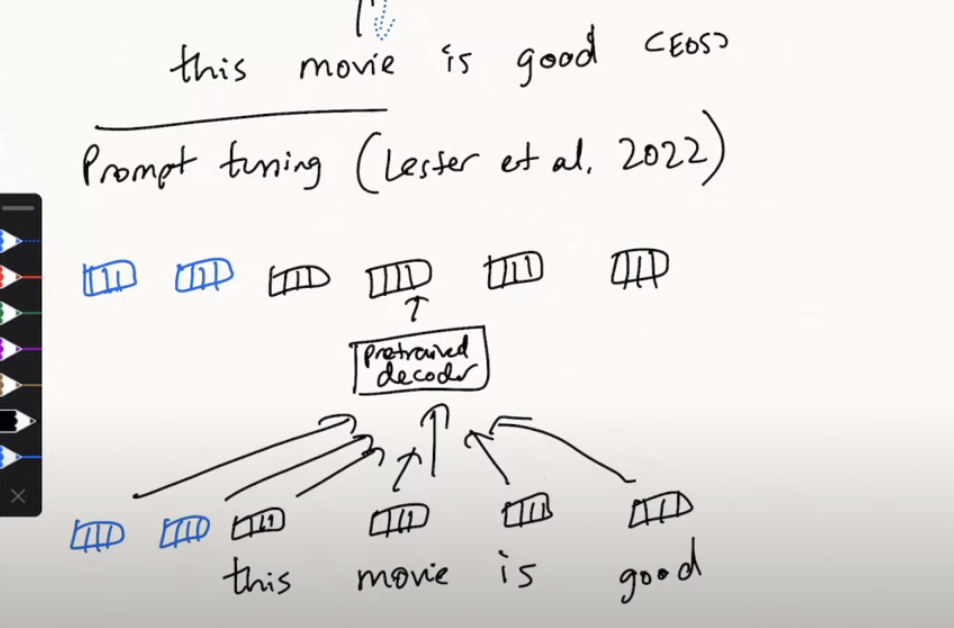 this movie is good <EOS>
Prompt tuning (Lester et al. 2022)
pretrained
decoder
this movie is good